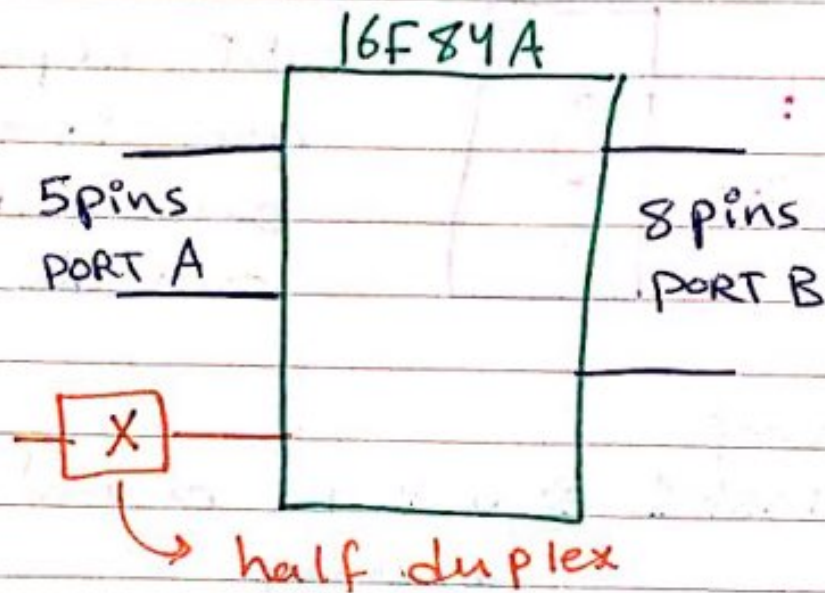 16F84A
5pins
PORT A
8 pins
PORT B
X
half duplex